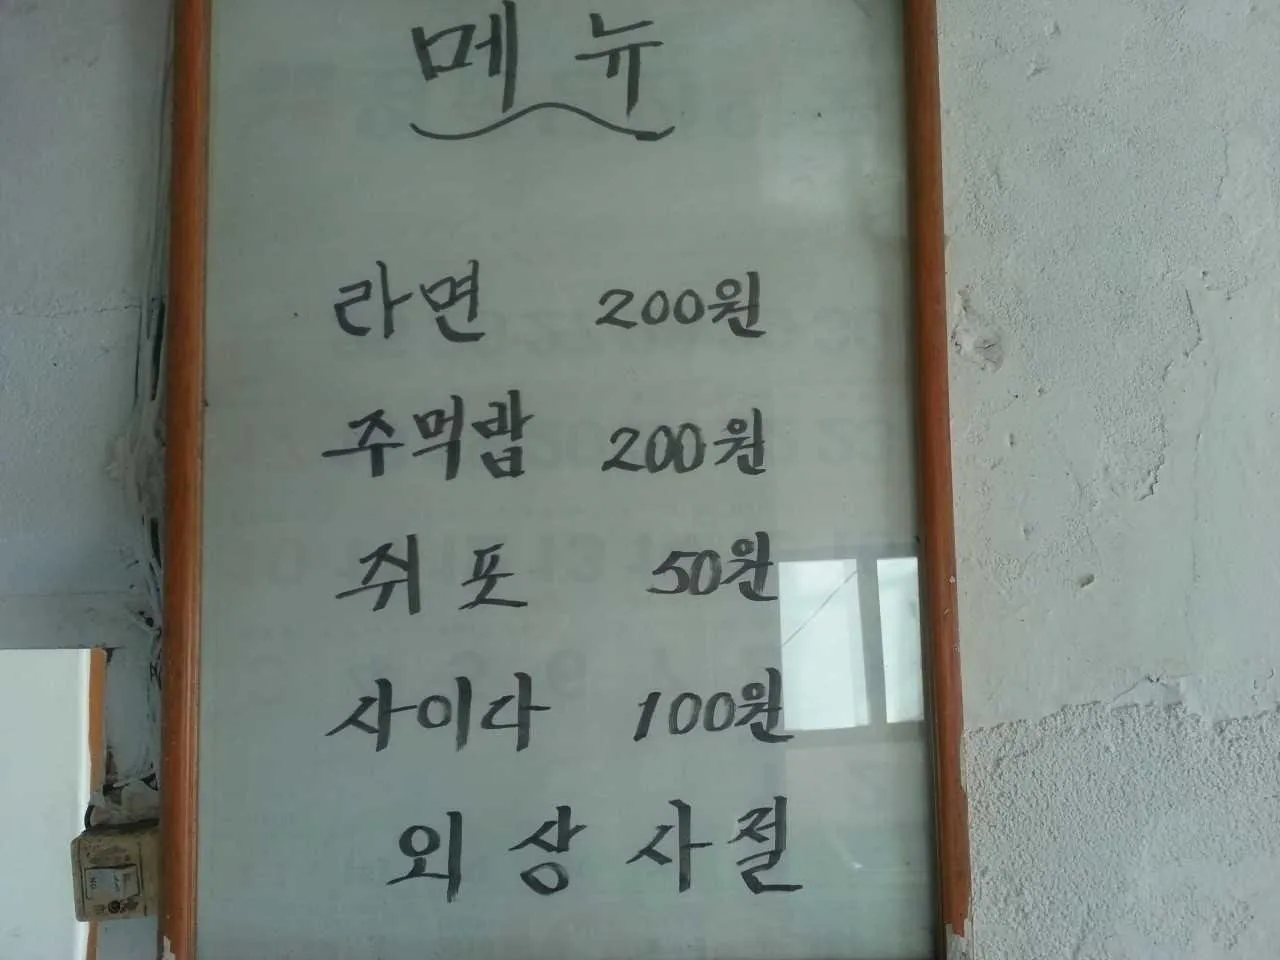 메뉴
라면 200원
주먹밥 200원
쥐포 50원
사이다 100원
외상사절